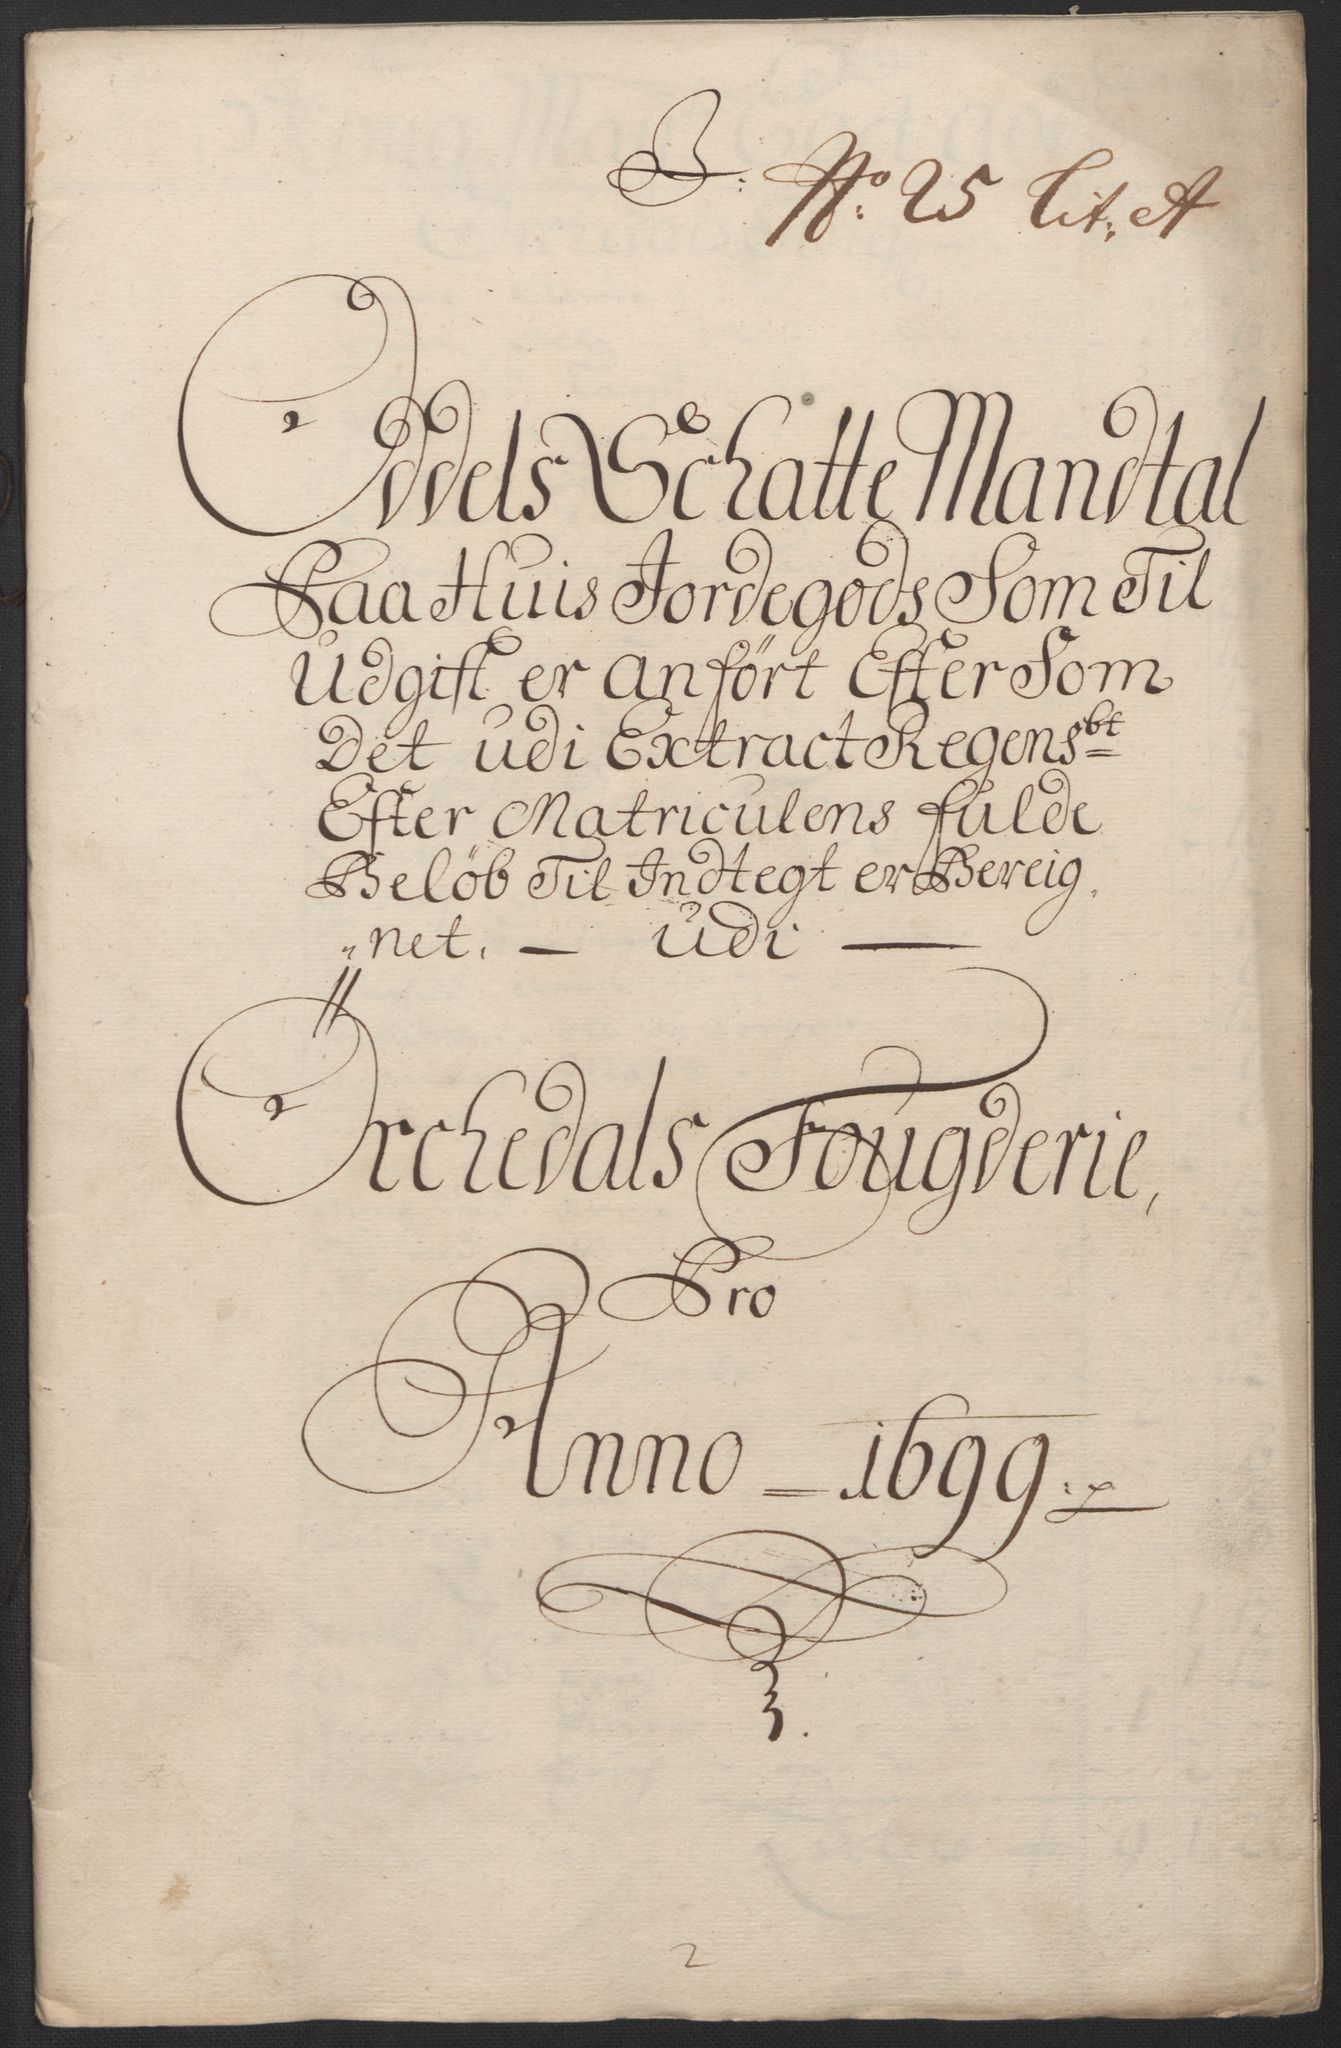 B: No: 25 Lit: A
Oddels Schatte Mandtal
Paa Huis Jordegods Som Til
Udgift er anført Efter Som
Det udi Extract Regensbt
Efter Matriculens fulde
Beløb Til Indtegt er Bereig
„net. — udi —
Orchedals Fougderie,
Pro
Anno = 1699 :
2